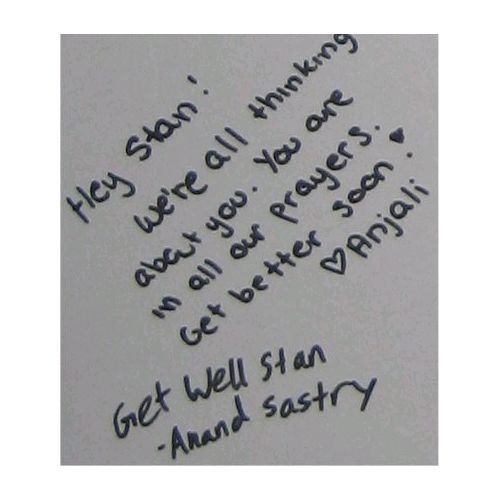 Hey Stan!
We're all thinking
about you. You are
in all our prayers.
Get better soon!
♡ Anjali
Get Well Stan
-Anand Sastry